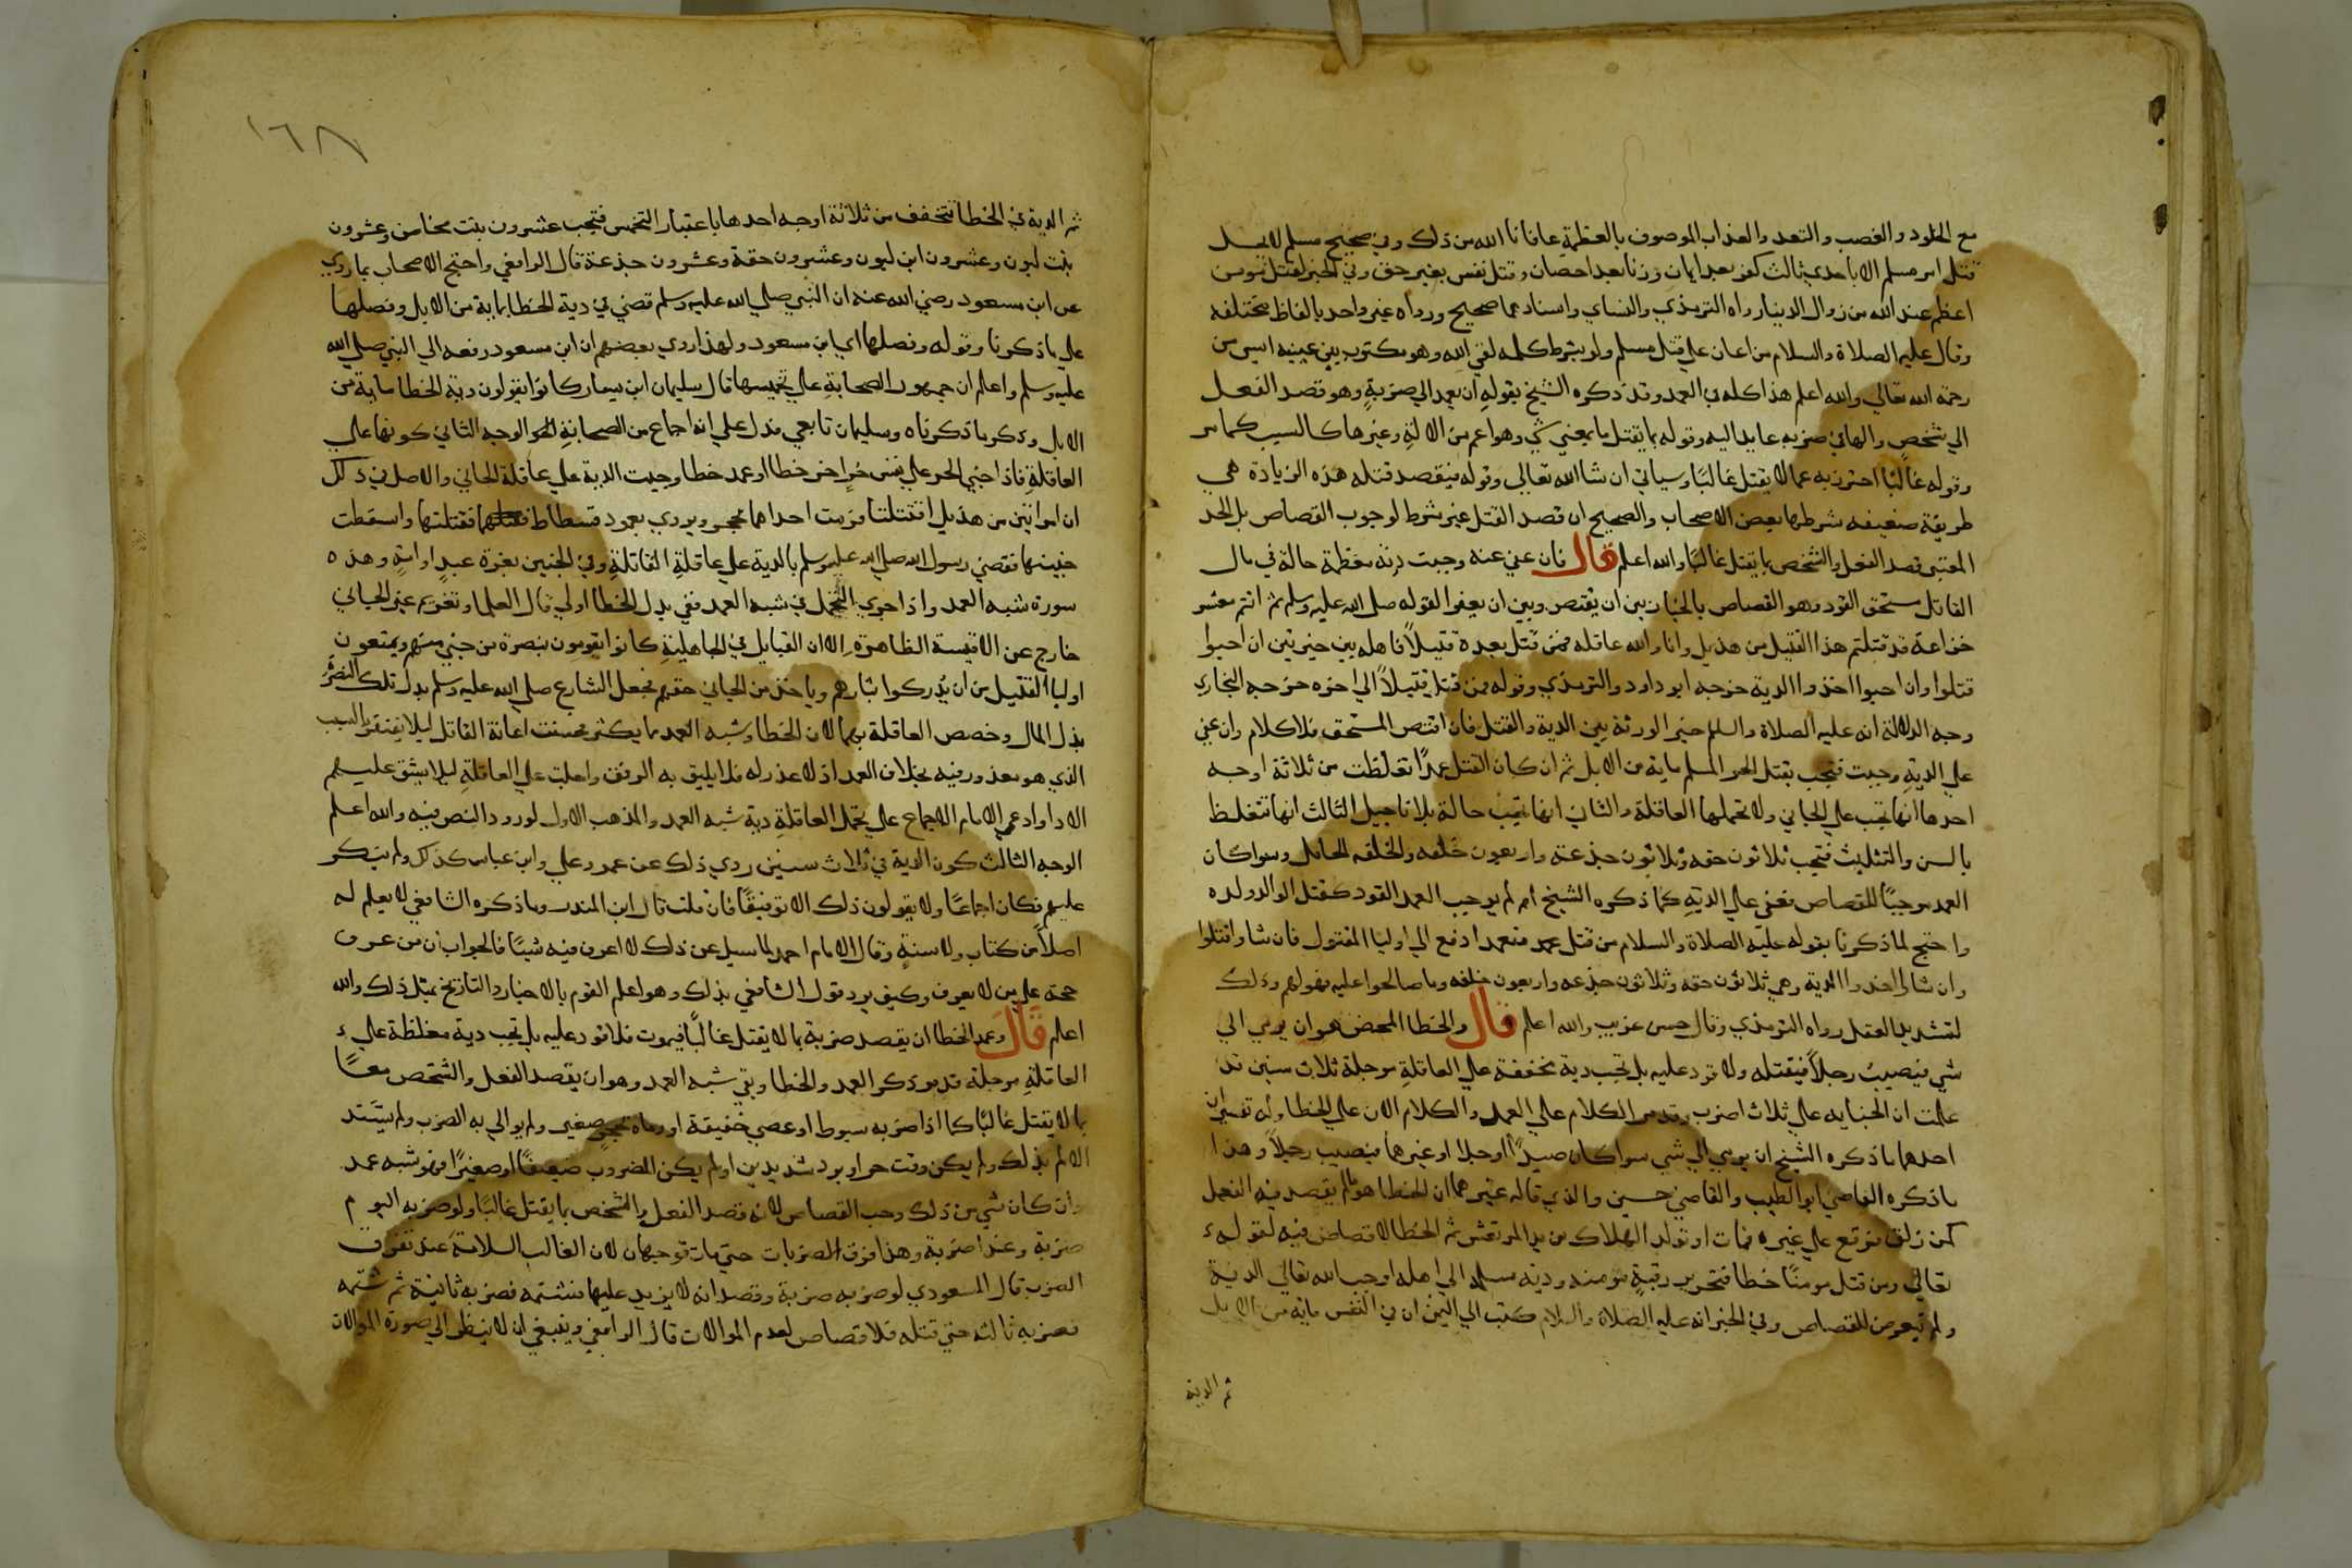 مع الخلود والغضب والتعد والعذاب الموصوف بالعظمة عافانا الله من ذلك وفي صحيح مسلم لا يحل
قتل امر مسلم الا باحدى ثلاث كفر بعد ايمان وزنا بعد احصان وقتل نفس بغير حق وفي الخبر لقتل مومن
اعظم عند الله من زوال الدينار واه الترمذي والنساي واسنادهما صحيح ورواه غير واحد بالفاظ مختلفه
وقال عليه الصلاة والسلام من اعان علي قتل مسلم ولو بشرط كلمه لقي الله وهو مكتوب بين عينيه ايس من
رحمة الله تعالي والله اعلم هذا كله في العمد وقد ذكره الشيخ بقوله ان يعمد الي ضربةٍ وهو قصد الفعل
الي شخصٍ والها في ضربه عايد اليه وقوله بما يقتل ما بمعني شي وهو اعم من الالة وغيرها كالسيب كما مر
وقوله غالبًا احترز به عما لا يقتل غالبًا وسياتي ان شا الله تعالي وقوله فيقصد قتله هذه الزيادة هي
طريقة ضعيفه شرطها بعض الاصحاب والصحيح ان قصد القتل غير شرط لوجوب القصاص بل الحد
المعتبر قصد الفعل والشخص بما يقتل غالبًا والله اعلم قال فان عفي عنه وجبت دية مغلظة حالة في مال
القاتل مستحق القود وهو القصاص بالخيار بين ان يقتص وبين ان يعفوا لقوله صلي الله عليه وسلم ثم انتم معشر
خزاعة قد قتلتم هذا القتيل من هذيل وانا والله عاقله فمن قتل بعده قتيلاً فاهله بين خيرتين ان احبوا
قتلوا وان احبوا اخذوا الدية خرجه ابو داود والترمذي وقوله فمن قتل قتيلاً الي اخره خرجه البخاري
وجه الدلالة انه عليه الصلاة والسلم خير الورثة بين الدية والقتل فان اقتص المستحق فلا كلام وان عفي
علي الديةِ وجبت فتجب بقتل الحر المسلم ماية من الابل ثم ان كان القتل عمدًا تغلظت من ثلاثة اوجه
احدها انها تجب علي الجاني ولا تحملها العاقلة والثاني انها تجب حالة بلا تاجيل الثالث انها تتغلظ
بالسن والتثليث فتجب ثلاثون حقه وثلاثون جذعة واربعون خَلفه والخلفه الحامل وسوا كان
العمد موجبًا للقصاص فعفي علي الديةِ كما ذكره الشيخ ام لم يوجب العمد القود كقتل الوالد ولده
واحتج لما ذكرنا بقوله عليه الصلاة والسلام من قتل عمد متعمدا دفع الي اوليا المقتول فان شاوا قتلوا
وان شاوا اخذوا الدية وهي ثلاثون حقه وثلاثون جذعه واربعون خلفه وما صالحوا عليه فهو لهم وذلك
لتشديد العقل رواه الترمذي وقال حسن غريب والله اعلم قال والخطا المحض هو ان يرمي الي
شي فيصيبُ رجلاً فيقتله ولا قود عليه بل تجب دية مخففة علي العاقلةِ موجلة ثلاث سنين قد
علمت ان الجنايه علي ثلاث اضرب وقد مر الكلام علي العمد والكلام الان علي الخطا وله تفسيران
احدها ما ذكره الشيخ ان يرمي الي شي سوا كان صيدًا او رجلا او غيرها فيصيب رجلاً وهذا
ما ذكره القاضي ابو الطيب والقاضي حسين والذي قاله غيرهما ان الخطا هو ما لم يقصد فيه الفعل
كمن زلق فوقع علي غيره فمات او تولد الهلاك من يد المرتعش ثم الخطا لا قصاص فيه لقوله
تعالي ومن قتل مومنًا خطا فتحرير رقبةٍ مومنه ودية مسلمه الي اهله اوجب الله تعالي الدية
ولم يتعرض للقصاص وفي الخبر انه عليه الصلاة والسلام كتب الي اليمن ان في النفس ماية من الابل
ثم الدية
١٦٨
ثم الدية في الخطا تتخفف من ثلاثة اوجه احدها باعتبار التخمس فتجب عشرون بنت مخاض وعشرون
بنت لبون وعشرون ابن لبون وعشرون حقة وعشرون جذعة قال الرافعي واحتج الاصحاب بما روي
عن ابن مسعود رضي الله عنه ان النبي صلي الله عليه وسلم قضي في دية الخطا بماية من الابل وفصلها
علي ما ذكرنا وقوله وفصلها اي ابن مسعود ولهذا روي بعضهم ان ابن مسعود رفعه الي النبي صلي الله
عليه وسلم واعلم ان جمهور الصحابةِ علي تخميسها قال سليمان ابن يسار كانوا يقولون دية الخطا ماية من
الابل وذكر ما ذكرناه وسليمان تابعي فدل علي انه اجماع من الصحابةِ الوجه الثاني كونها علي
العاقلةِ فاذا جني الحر علي نفس حُرٍ اخر خطا او عمد خطا وجبت الدية علي عاقلة الجاني والاصل في ذلك
ان امراتين من هذيل اقتتلتا فرمت احداهما بحجر ويروي بعمود فسطاط فقتلتها واسقطت
جنينها فقضي رسول الله صلي الله عليه وسلم بالدية علي عاقلةِ القاتلةِ وفي الجنين بغرة عبدٍ او امةٍ وهذه
سورة شبه العمد واذا جري التحمل في شبه العمد ففي بدل الخطا اولي قال العلما وتغريم غير الجاني
خارج عن الاقيسة الظاهرة الا ان القبايل في الجاهليةِ كانوا يقومون بنصرة من جني منهم ويمنعون
اوليا القتيل من ان يُدركوا بثارهم وياخذ من الجاني حقهم فجعل الشارع صلي الله عليه وسلم بدل تلك النصرة
بذل المال وخصص العاقلة بهما لان الخطا وشبه العمد مما يكثر فحسنت اعانة القاتل ليلا يفتقر بالسبب
الذي هو معذور فيه بخلاف العمد اذ لا عذر له فلا يليق به الرفق واجلت علي العاقلةِ ليلا يشق عليهم
الادا وادعي الامام الاجماع علي تحمل العاقلةِ دية شبه العمد والمذهب الاول لورود النص فيه والله اعلم
الوجه الثالث كون الدية في ثلاث سنين روي ذلك عن عمر وعلي وابن عباس كذلك ولم ينكر
عليهم فكان اجماعًا ولا يقولون ذلك الا توقيفًا فان قلت قال ابن المنذر وما ذكره الشافعي لا يعلم له
اصلاً من كتاب ولا سنةٍ وقال الامام احمد لما سيل عن ذلك لا اعرف فيه شيئًا فالجواب ان من عرف
حجة علي من لا يعرف وكيف يرد قول الشافعي بذلك وهو اعلم القوم بالاخبار والتاريخ بمثل ذلك والله
اعلم قَالَ وعمد الخطا ان يقصد ضربة بما لا يقتل غالبًا فيموت فلا قود عليه بل تجب دية مغلظة علي
العاقلةِ موجلة قد مر ذكر العمد والخطا وبقي شبه العمد وهو ان يقصد الفعل والشخص معًا
بما لا يقتل غالبًا كما اذا ضربه بسوط او عصي خفيفة او رماه بحجرٍ صغير ولم يوالي به الضرب ولم يشتد
الالم بذلك ولم يكن وقت حر او برد شديدين او لم يكن المضروب ضعيفًا او صغيرًا فهو شبه عمد
وان كان شي من ذلك وجب القصاص لانه قصد الفعل والشخص بما يقتل غالبًا ولو ضربه اليوم
ضربة وغدا ضربة وهذا فرق الضربات حتي مات فوجهان لان الغالب السلامة عند تفرق
الضرب قال المسعودي لو ضربه ضربة وقصد انه لا يزيد عليها فشتمه فضربه ثانية ثم شتمه
فضربه ثالثه حتي قتله فلا قصاص لعدم الموالات قال الرافعي وينبغي ان لا ينظر الي صورة الموالات